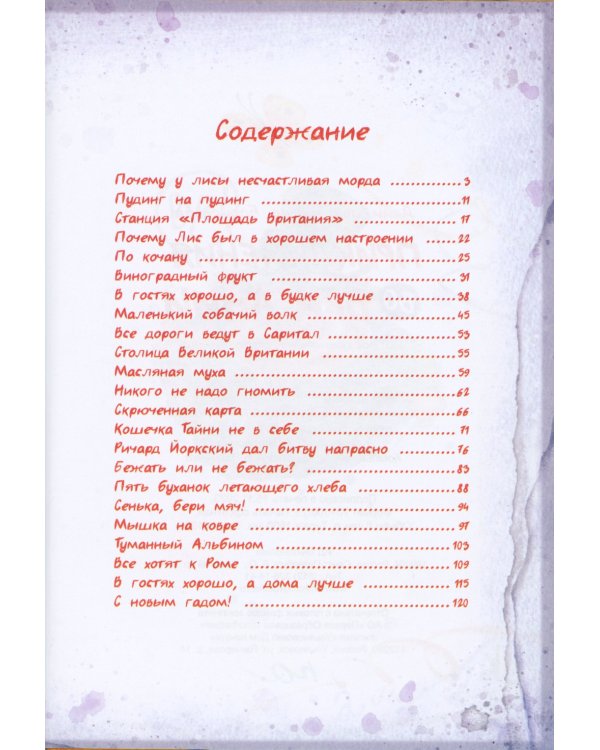 Содержание
Почему у лисы несчастливая морда 3
Пудинг на пудинг 11
Станция «Площадь Вритания» 17
Почему Лис был в хорошем настроении 22
По кочану 25
Виноградный фрукт 31
В гостях хорошо, а в будке лучше 38
Маленький собачий волк 45
Все дороги ведут в Саритал 53
Столица Великой Вритании 55
Масляная муха 59
Никого не надо гномить 62
Скрюченная карта 66
Кошечка Тайни не в себе 71
Ричард Йоркский дал битву напрасно 76
Бежать или не бежать? 83
Пять буханок летающего хлеба 88
Сенька, бери мяч! 94
Мышка на ковре 97
Туманный Альбином 103
Все хотят к Роме 109
В гостях хорошо, а дома лучше 115
С новым гадом! 120